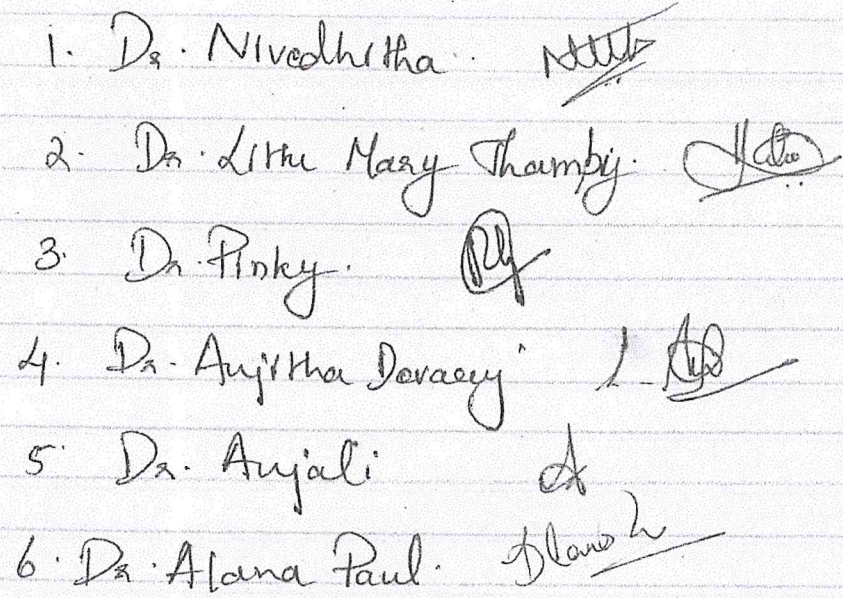 1. Dr. Nivedhitha
2. Dr. Litty Mary Thamby.
3. Dr. Pinky.
4. Dr. Anjitha Devaraj
5. Dr. Anjali
6. Dr. Alana Paul.